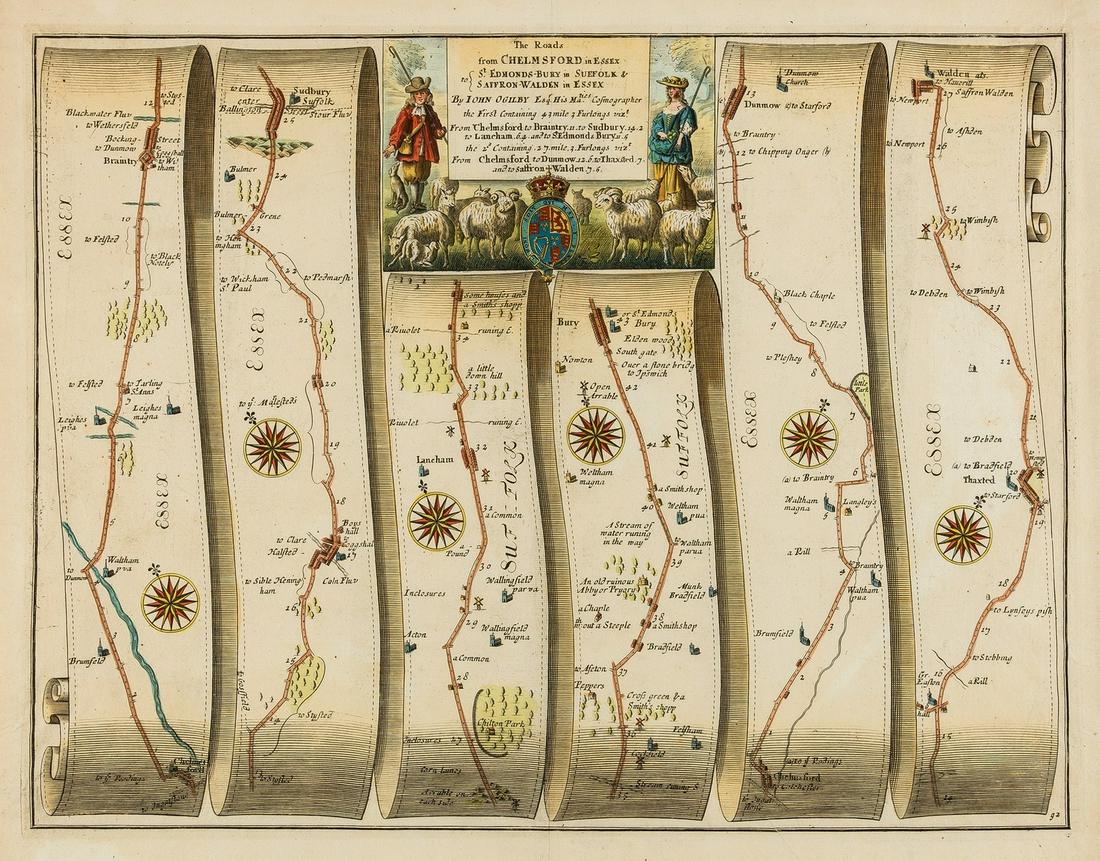 The Roads
from CHELMSFORD in ESSEX
to { St EDMONDS-BURY in SUFFOLK &
SAFFRON-WALDEN in ESSEX
By IOHN OGILBY Esqr. His Maties Cosmographer
the First Containing 43 mile 3 Furlongs vizt
From Chelmsford to Braintry.11. to Sudbury.14.2
to Lancham.6.4. and to St Edmonds Bury.11.5
the 2d Containing. 27. mile. 3. Furlongs vizt
From Chelmsford to Dunmow.12.6 to Thaxted.7.
and to Saffron Walden.7.5.
to Systed
12
Blackwater Fluv
to Wethersfeld
Bocking Street
to Dunmow
Braintry
to Witham
ESSEX
10
to Felsted
to Black Notely
9
8
to Felsted
to Tarling
St Anns
Leighes pva
Leighes magna
ESSEX
6
Waltham pva
to Dunmow
3
Brumfeld
to ye Rodings
Chelmsford
to Clare
enter
Ballington
Sudbury
Suffolk
Stour Fluv
25
Bulmer
24
Bulmer Grene
23
to Heningham
22
to Wickham St Paul
to Pedmarsh
21
ESSEX
20
to ye Malesteds
19
18
Boys hall
to Clare
Halsted
to Coggshal
17
Coln Fluv
to Sible Heningham
16
15
to Gosfeild
to Stysted
to Stysted
Some houses and
a Smiths shopp
a Rivolet
runing E.
34
a little down hill
33
Rivolet
runing E.
32
Lancham
SUFFOLK
31
a Common
a Pound
30
Wallingfeild parva
Inclosures
29
Wallingfeild magna
Acton
a Common
28
Chilton Park
Inclosures
27
corn lanes
Arrable on each side
Bury
or St Edmonds Bury
Elden wood
43
South gate
Nowton
Over a stone bridg
to Ipswich
Open Arrable
42
SUFFOLK
41
Weltham magna
a Smith shop
40
Weltham pua
A Stream of water runing in the way
to Waltham parua
39
An old ruinous Abby or Pryory
Munk Bradfeild
a Chaple
without a Steeple
38
a Smith shop
Bradfeild
to Aseton
37
Peppers
Cross green & a
Smith's shopp
36
Felsham
Cockfield
Stream runing S
35
Dunmow Church
13
Dunmow
to Starford
to Braintry
12
to Chipping Onger (b)
11
10
Black Chaple
9
to Felsted
to Pleshey
8
little Park
7
ESSEX
6
(a) to Braintry
Waltham magna
5
Langley's
a Rill
to Braintry
4
Waltham pua
Brumfield
3
2
1
(a) to ye Rodings
Chelmsford
to Colchester
Walden als.
Saffron Walden
to Haverill
27
to Newport
to Ashden
to Newport
26
25
to Wimbish
24
to Debden
to Wimbish
23
22
ESSEX
21
to Debden
(a) to Bradfield
20
Thaxted
to Starford
19
18
to Lynseys pish
17
to Stebbing
16
a Rill
Gr. Easton
hall
15
14
92